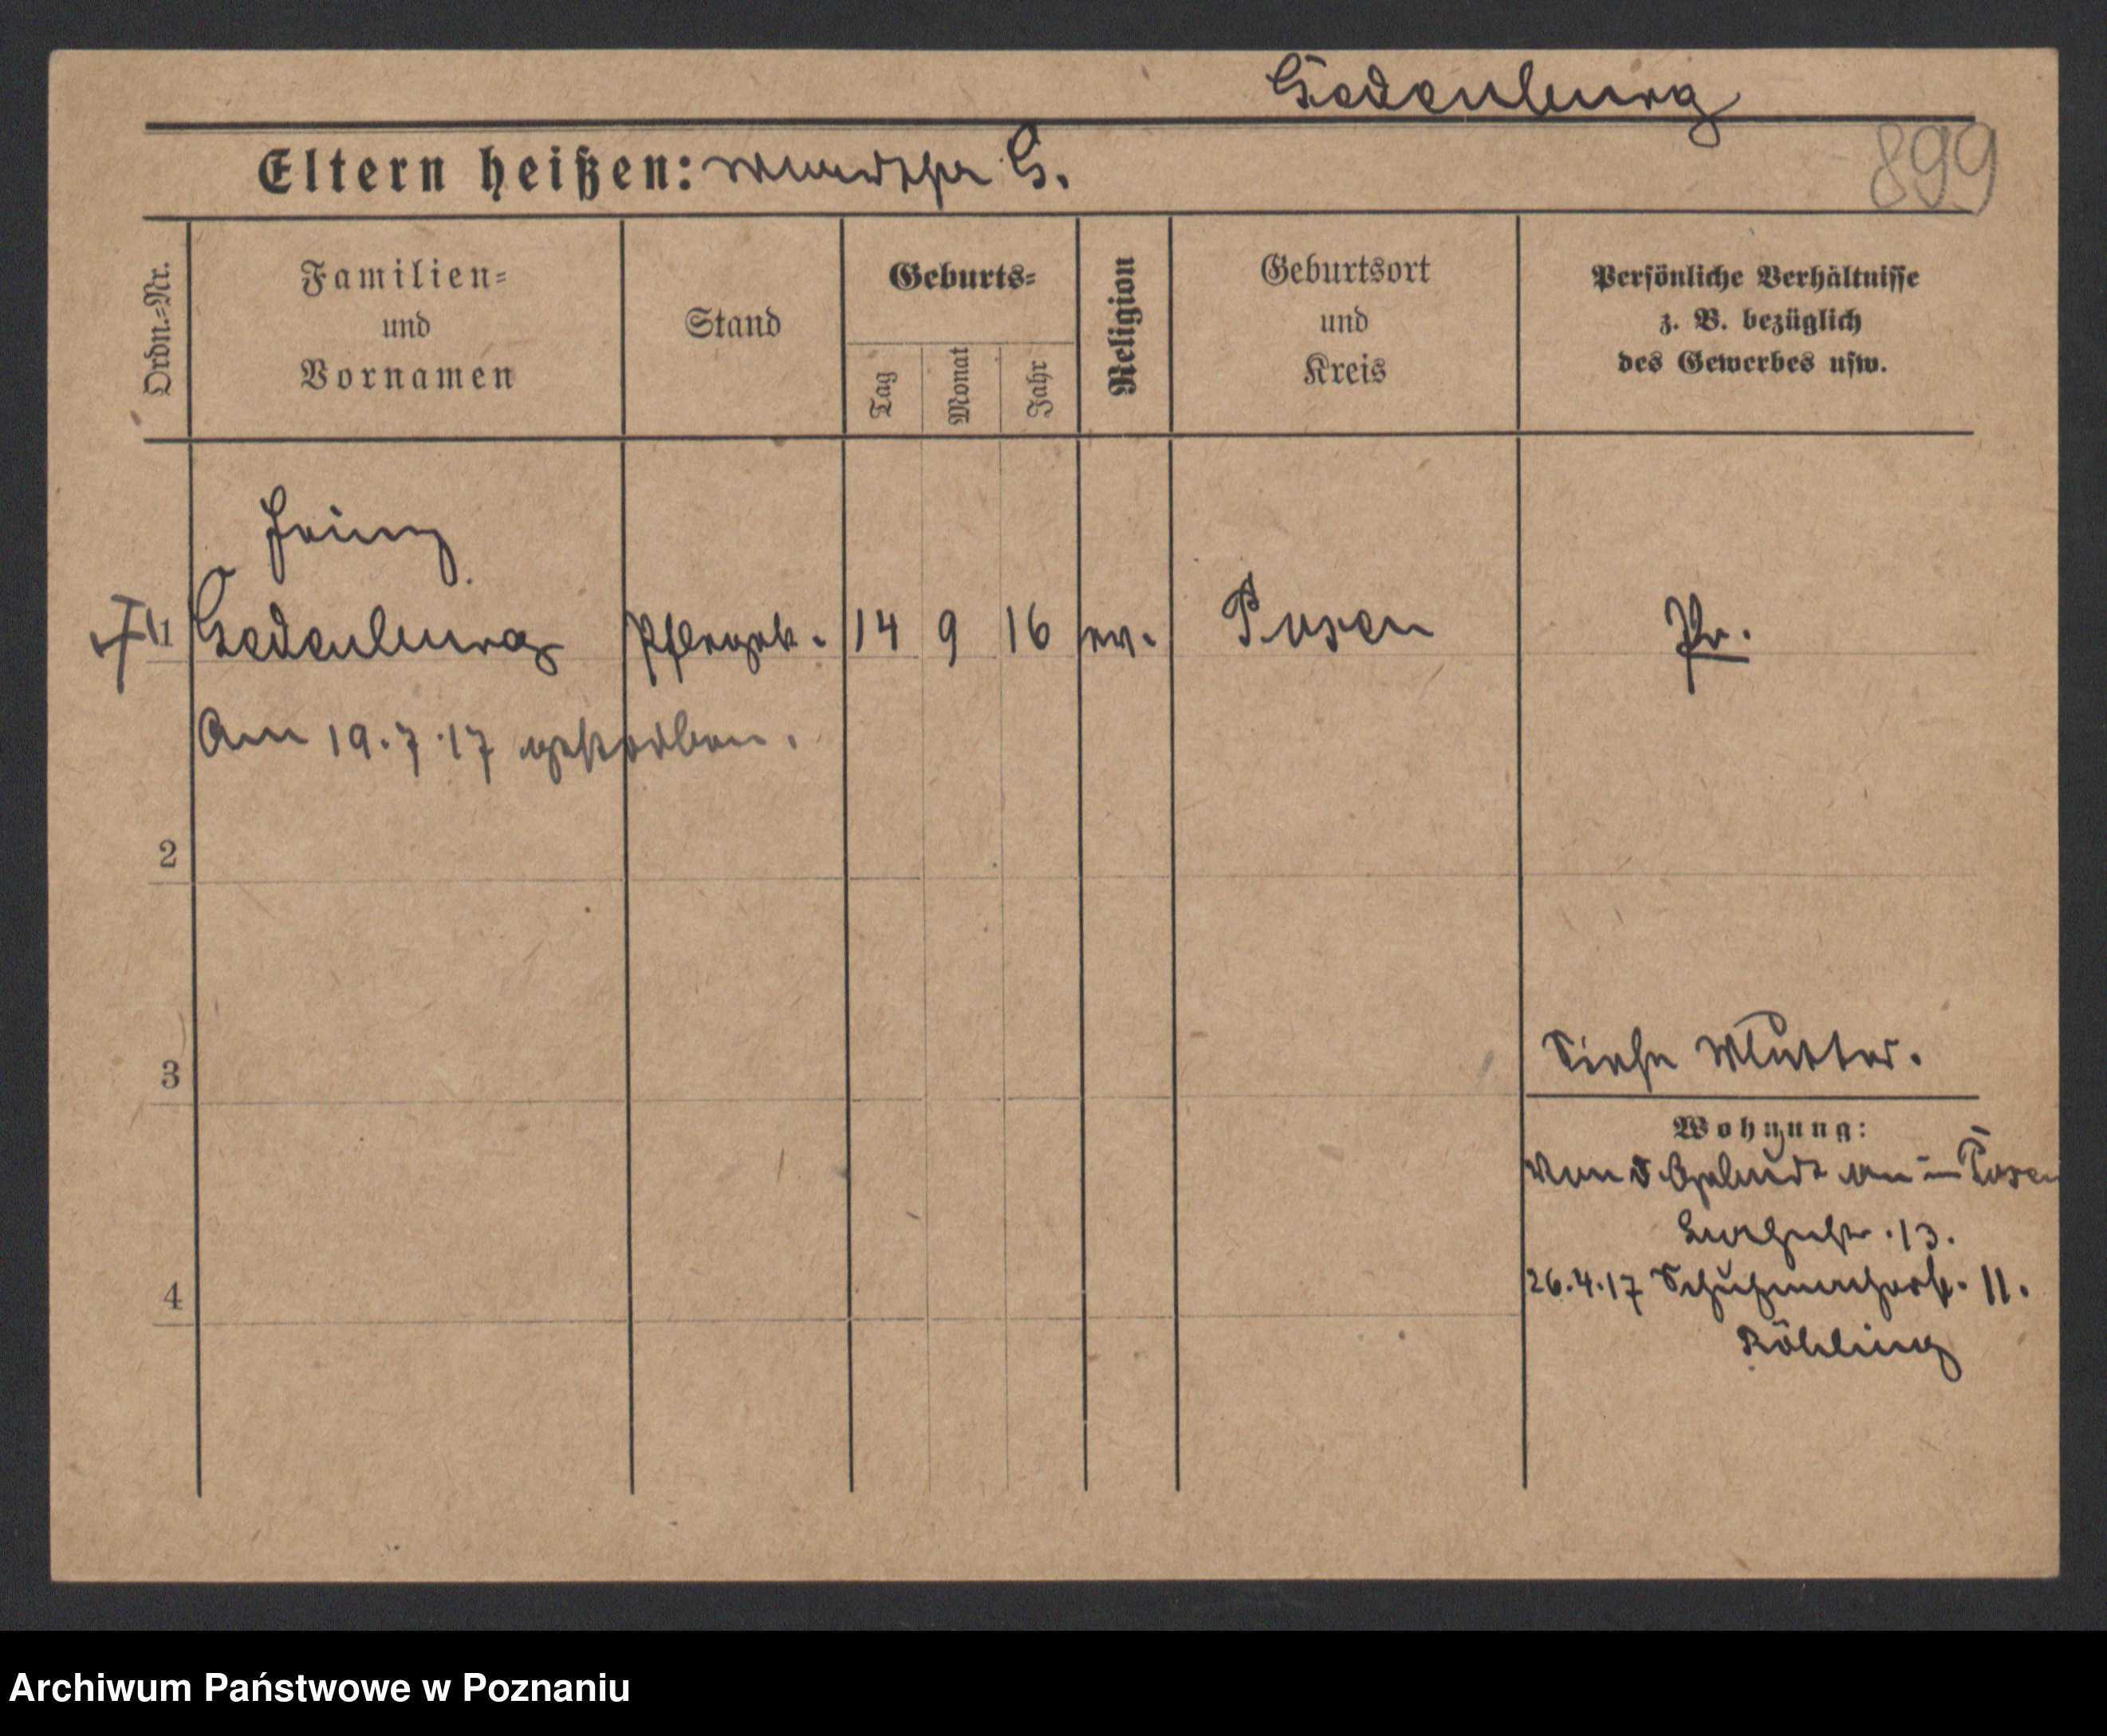 Gadenburg
Eltern heißen: G.
899
Ordn.-Nr.
Familien-
und
Vornamen
Stand
Geburts-
Tag
Monat
Jahr
Religion
Geburtsort
und
Kreis
Persönliche Verhältnisse
z. B. bezüglich
des Gewerbes usw.
Heinz
1 Gadenburg 14 9 16 ev. Posen Pr.
Am 19.7.17 gestorben.
2
3
4
Siehe Mutter.
Wohnung:
Von d Geburt an in Posen
13.
26.4.17 Schuhmacherstr. 11.
Röhling
Archiwum Państwowe w Poznaniu